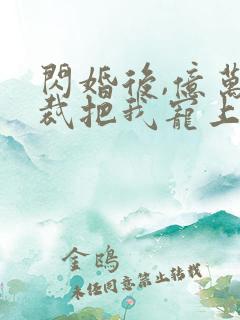 閃婚後,億萬
裁把我寵上
金鴎
未经同意禁止转载